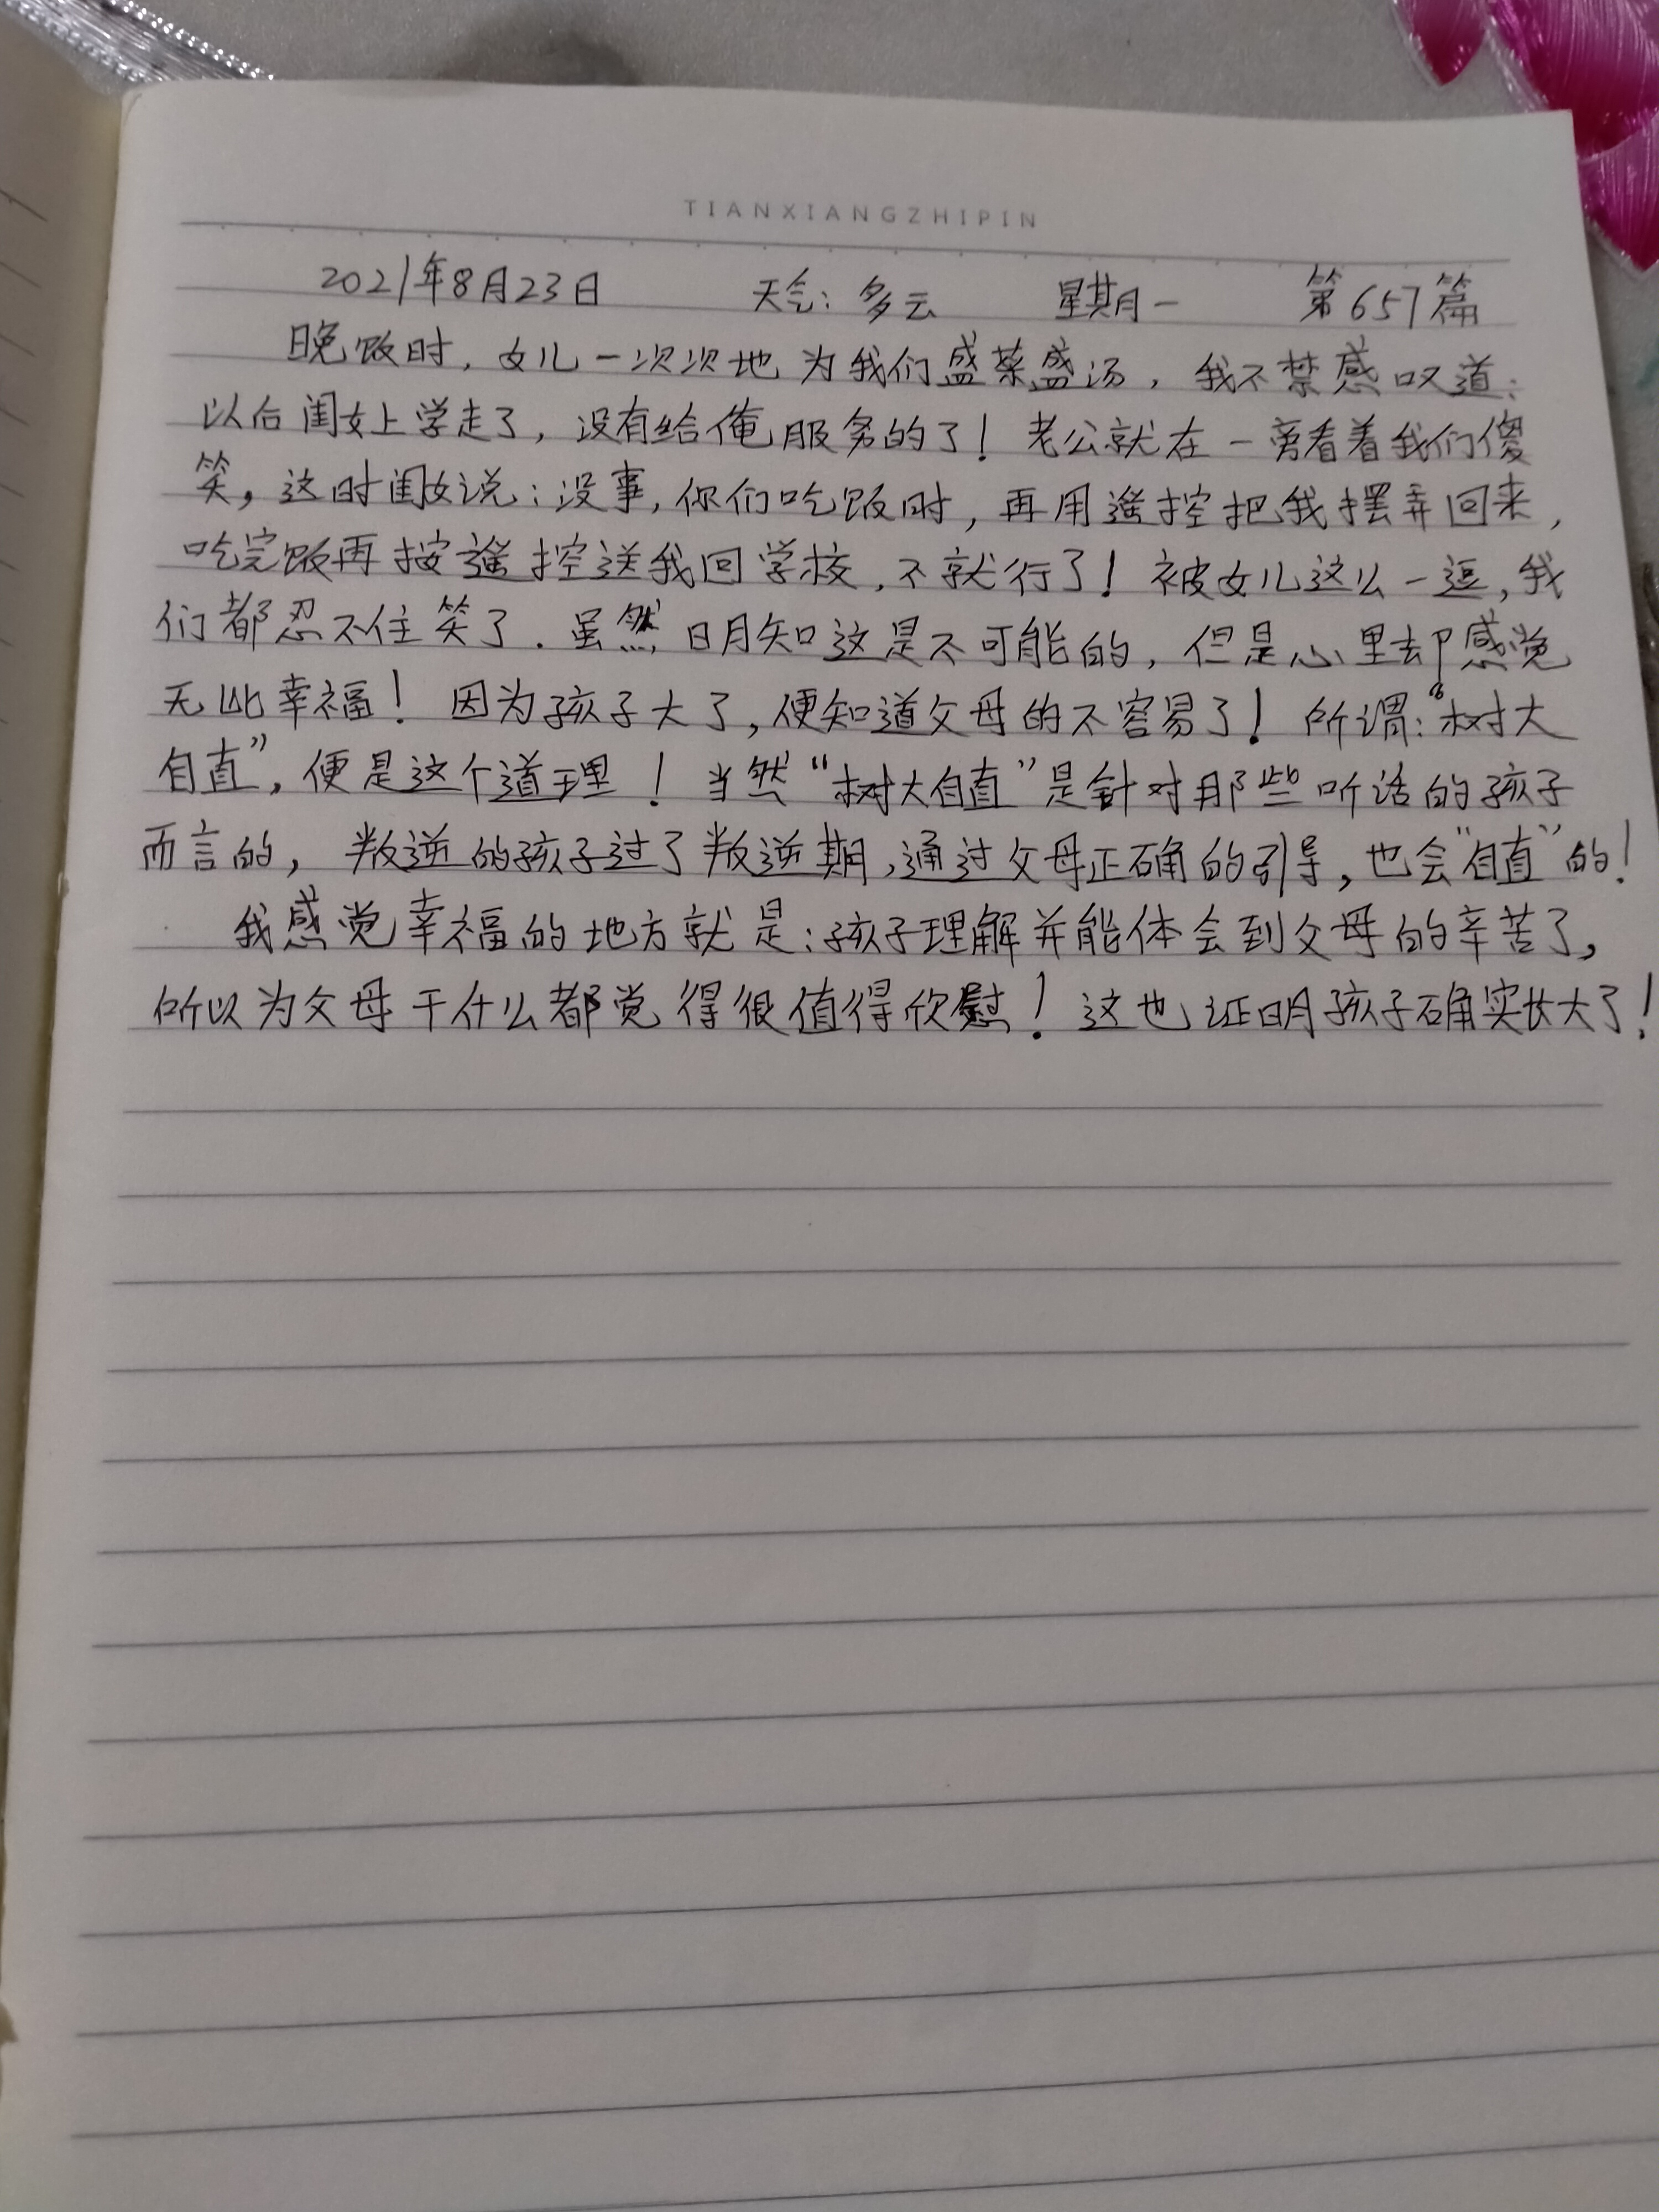 TIANXIANGZHIPIN
2021年8月23日 天气：多云 星期一 第657篇
晚饭时，女儿一次次地为我们盛菜盛汤，我不禁感叹道：
以后闺女上学走了，没有给俺服务的了！老公就在一旁看着我们傻
笑，这时闺女说：没事，你们吃饭时，再用遥控把我摆弄回来，
吃完饭再按遥控送我回学校，不就行了！被女儿这么一逗，我
们都忍不住笑了．虽然明知这是不可能的，但是心里却感觉
无比幸福！因为孩子大了，便知道父母的不容易了！所谓：“树大
自直”，便是这个道理！当然“树大自直”是针对那些听话的孩子
而言的，叛逆的孩子过了叛逆期，通过父母正确的引导，也会“自直”的！
我感觉幸福的地方就是：孩子理解并能体会到父母的辛苦了，
所以为父母干什么都觉得很值得欣慰！这也证明孩子确实长大了！